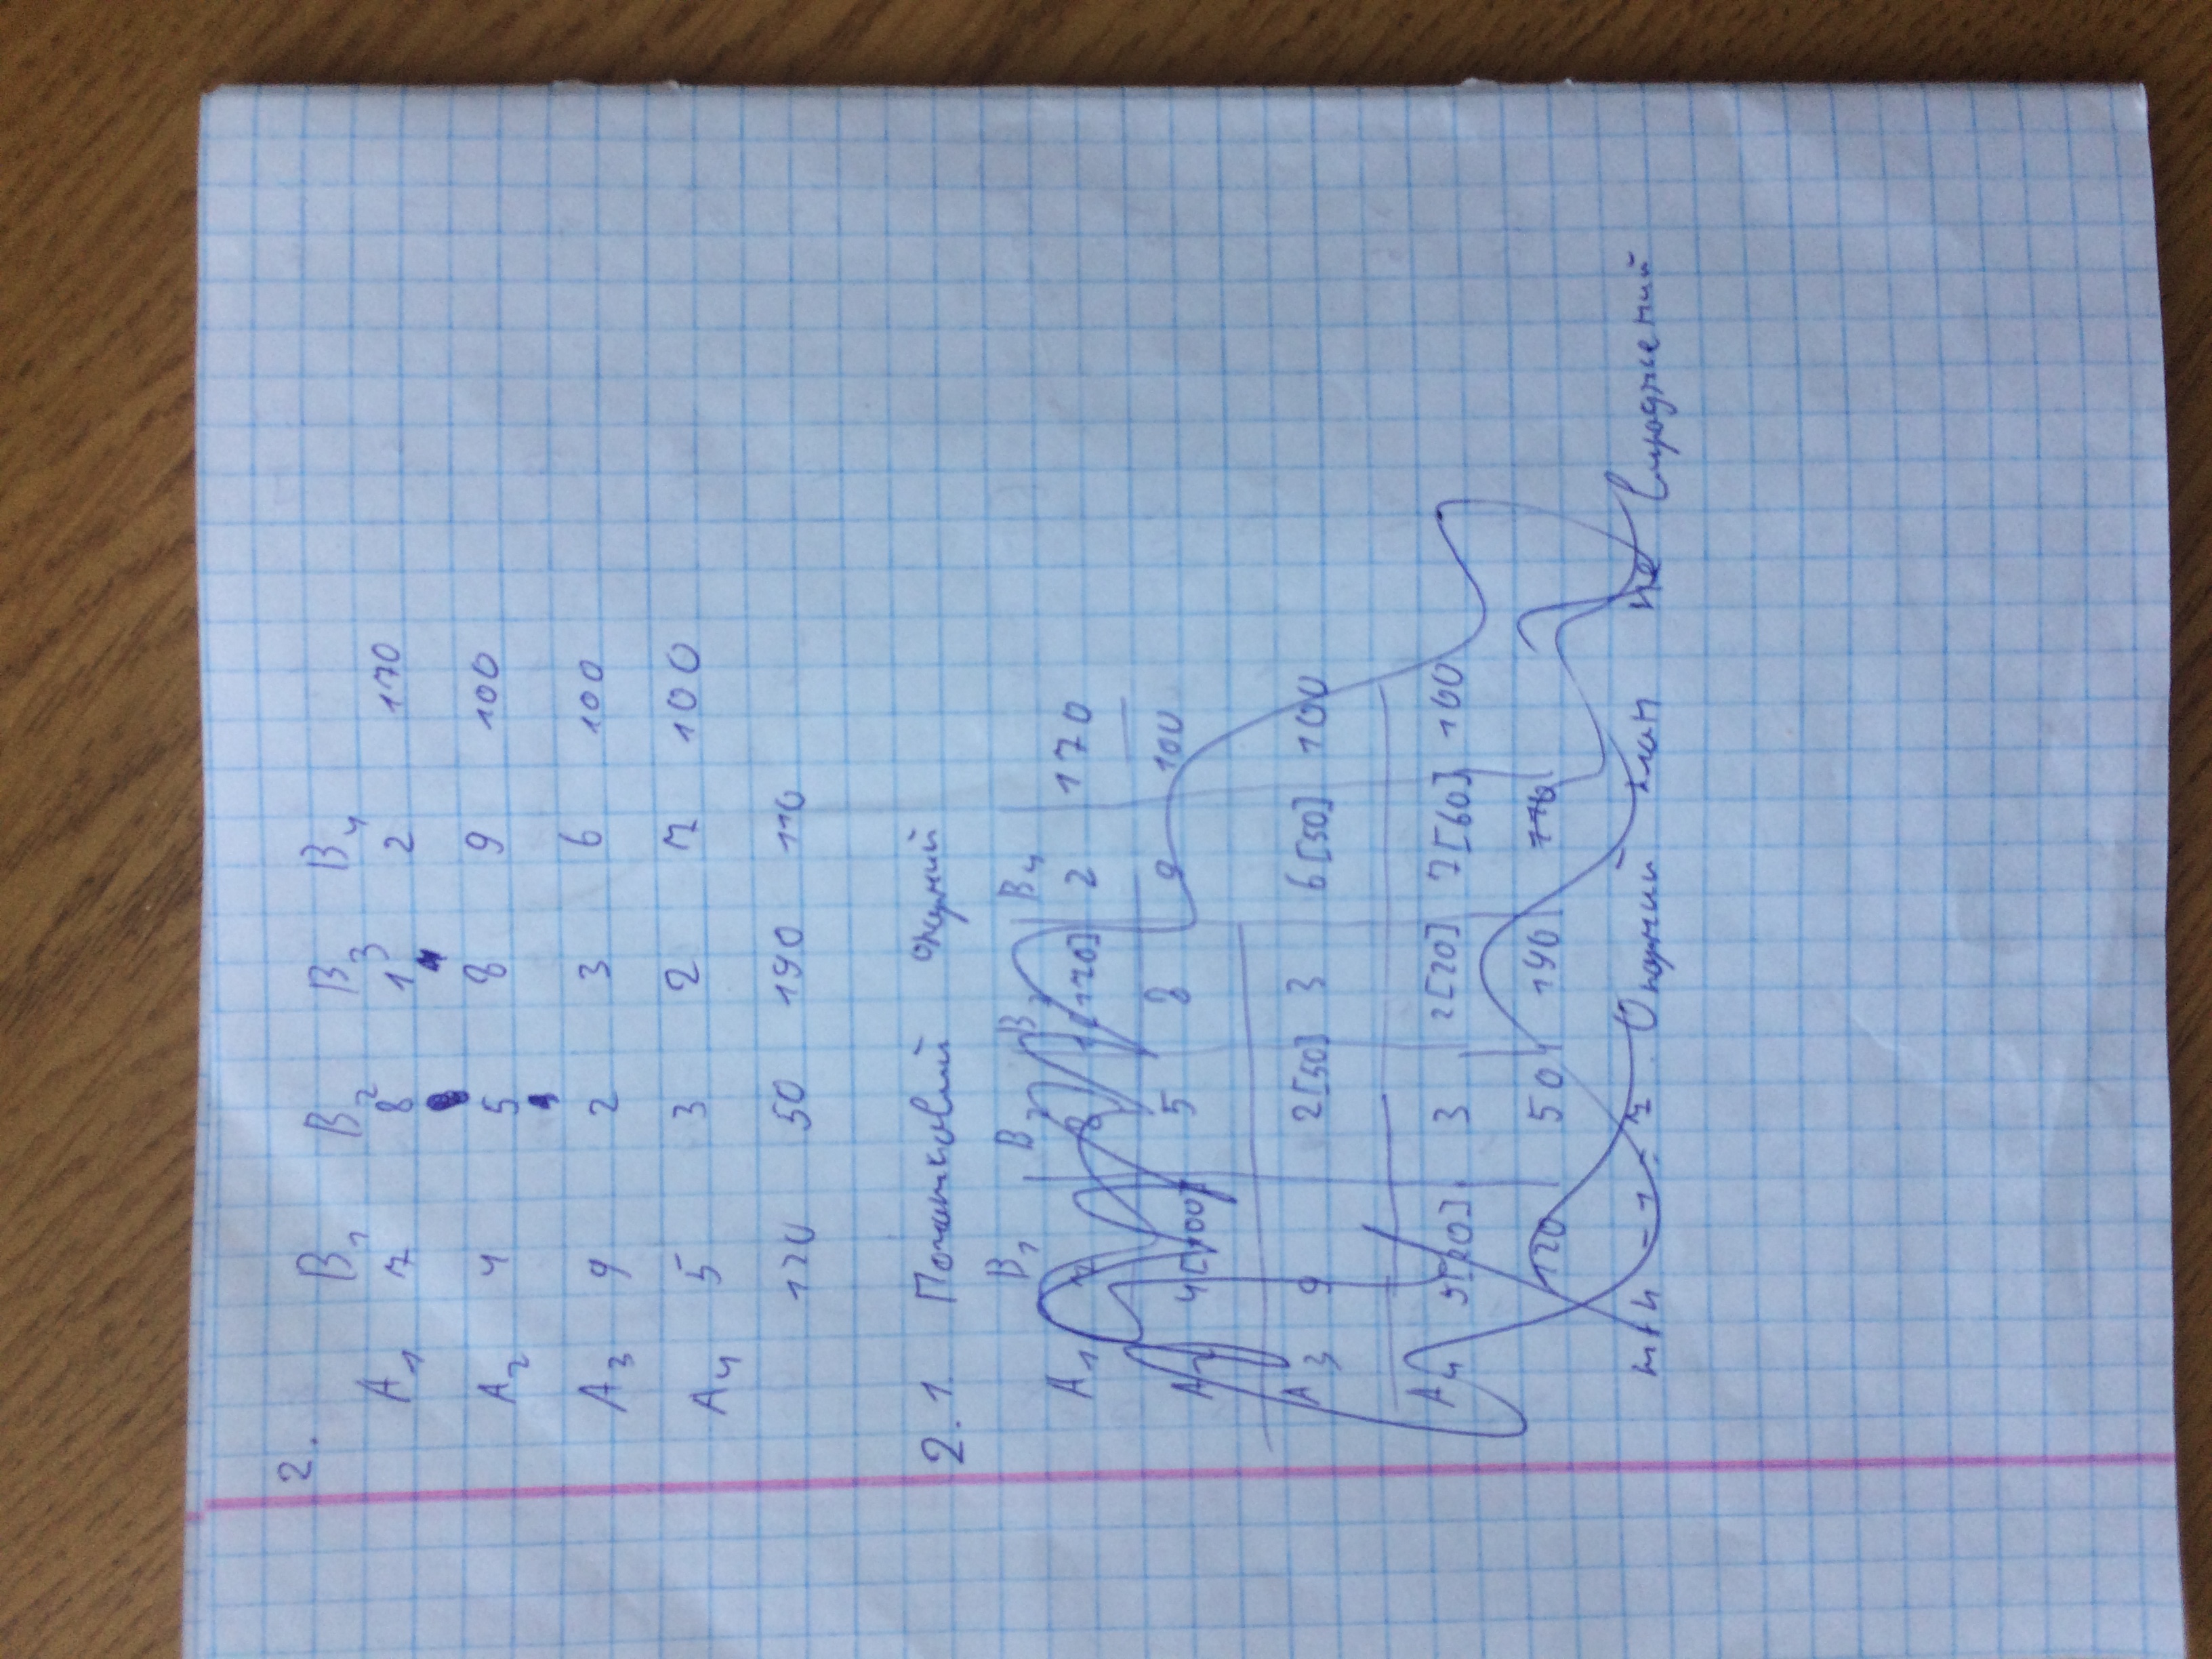 2.
B₁ B₂ B₃ B₄
A₁ 7 8 1 2 170
A₂ 4 5 8 9 100
A₃ 9 2 3 6 100
A₄ 5 3 2 7 100
120 50 190 110
2.1. Початковий опорний
B₁ B₂ B₃ B₄
A₁ 7 8 1[170] 2 170
A₂ 4[100] 5 8 9 100
A₃ 9 2[50] 3 6[50] 100
A₄ 5[20] 3 2[20] 7[60] 100
120 50 190 110
m+n-1=7. Опорний план не вироджений